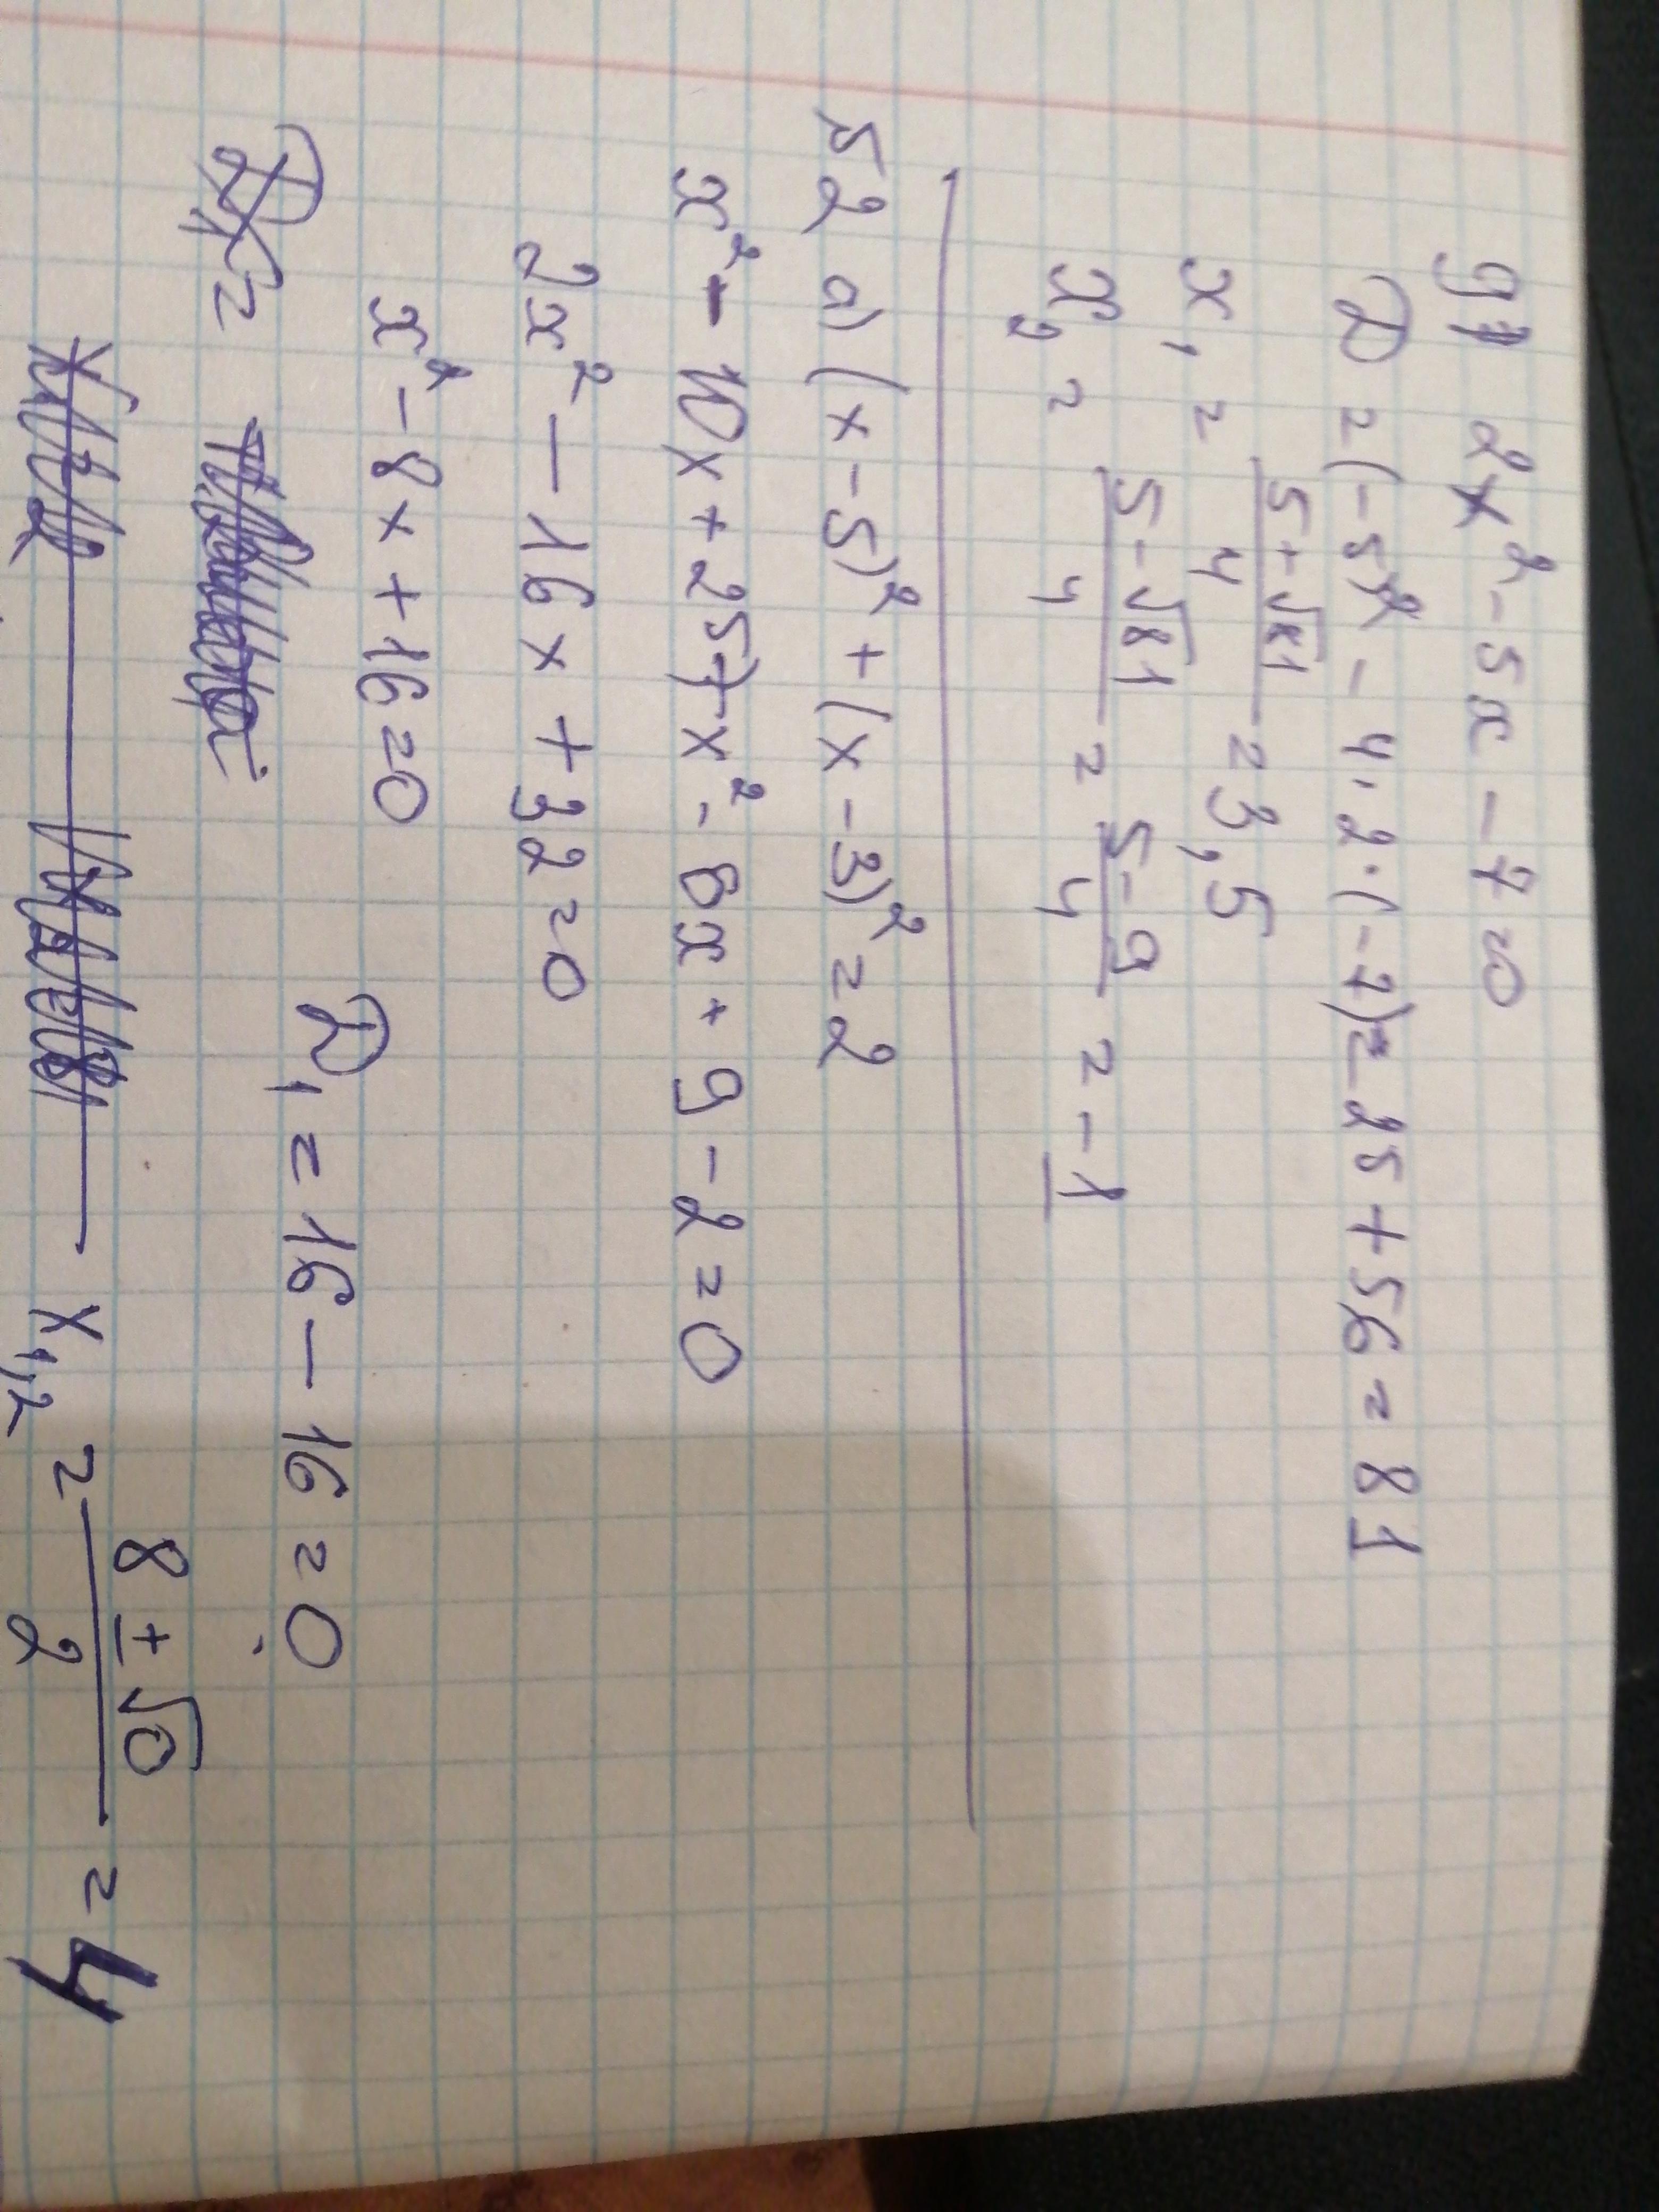 g) 2x² - 5x - 7 = 0
D = (-5)² - 4·2·(-7) = 25 + 56 = 81
x₁ = (5+√81)/4 = 3,5
x₂ = (5-√81)/4 = (5-9)/4 = -1
52 a) (x-5)² + (x-3)² = 2
x² - 10x + 25 + x² - 6x + 9 - 2 = 0
2x² - 16x + 32 = 0
x² - 8x + 16 = 0
D₁ = 16 - 16 = 0
x₁,₂ = (8±√0)/2 = 4